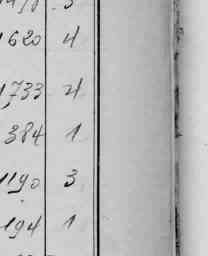 1620 4
1733 4
384 1
1190 3
194 1